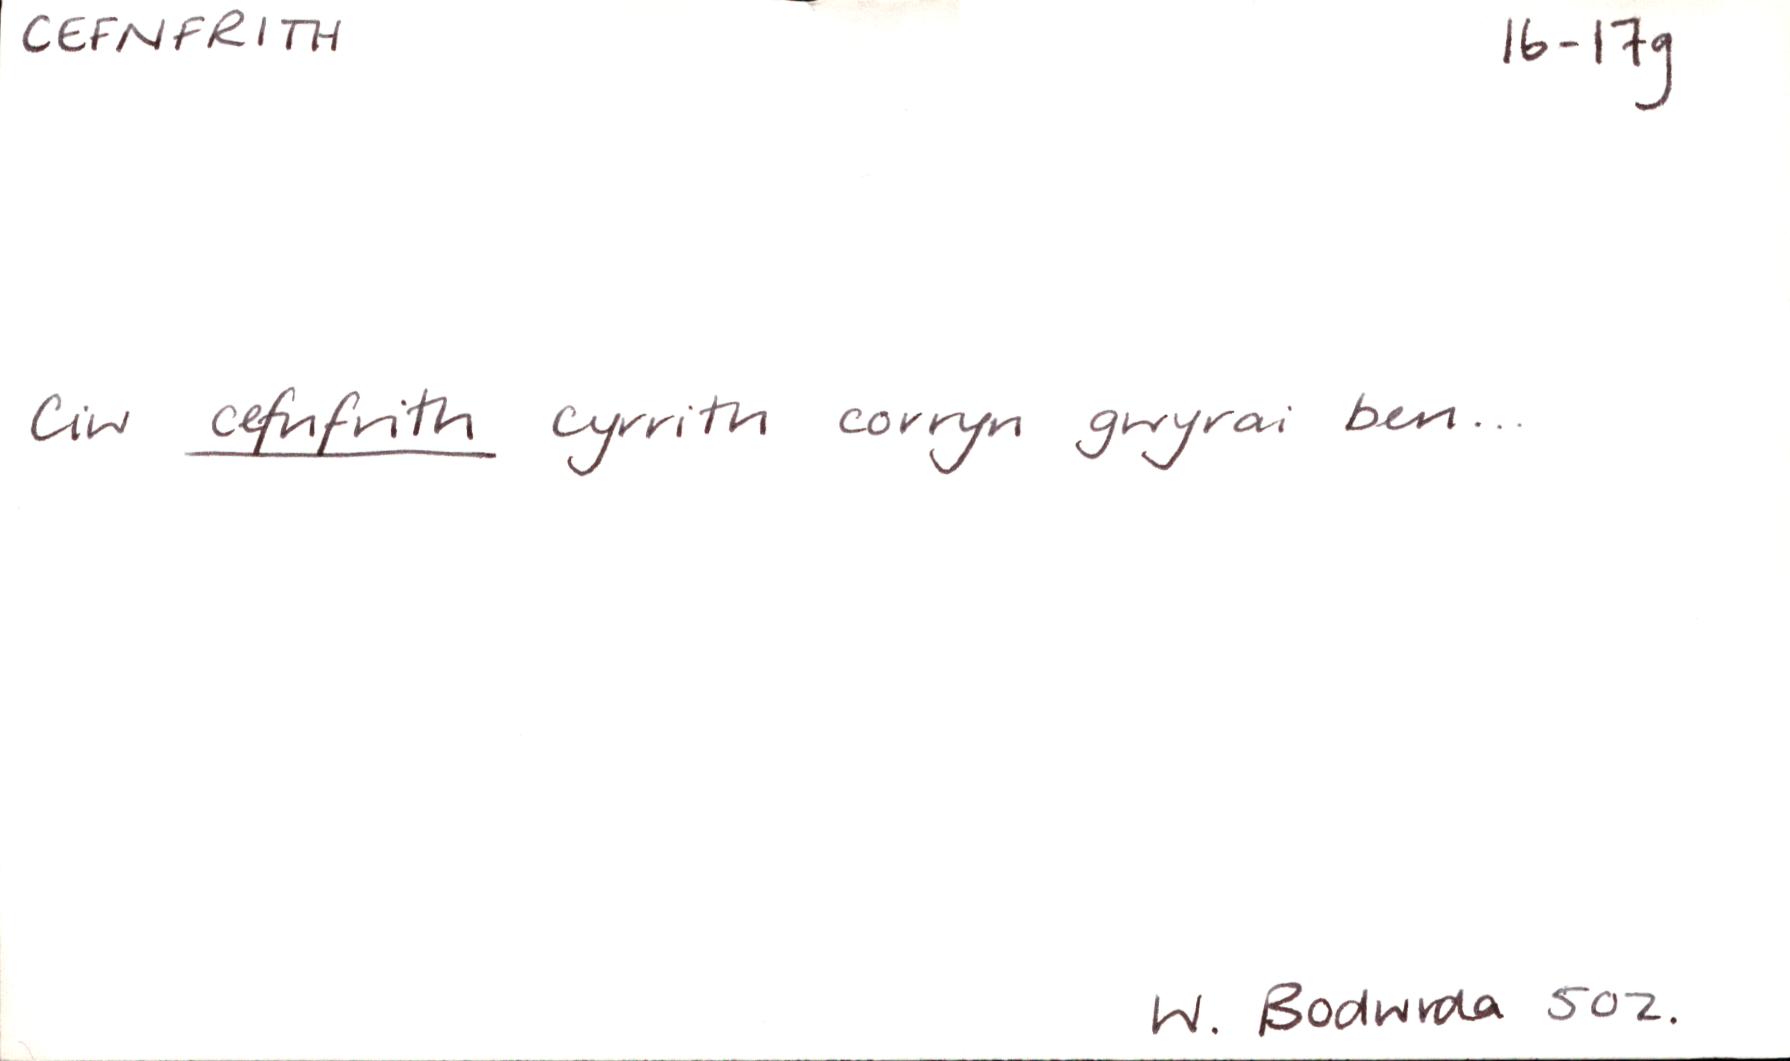 CEFNFRITH
16-17g
Ciw cefnfrith cyrrith corryn gwyrai ben...
W. Bodwrda 502.